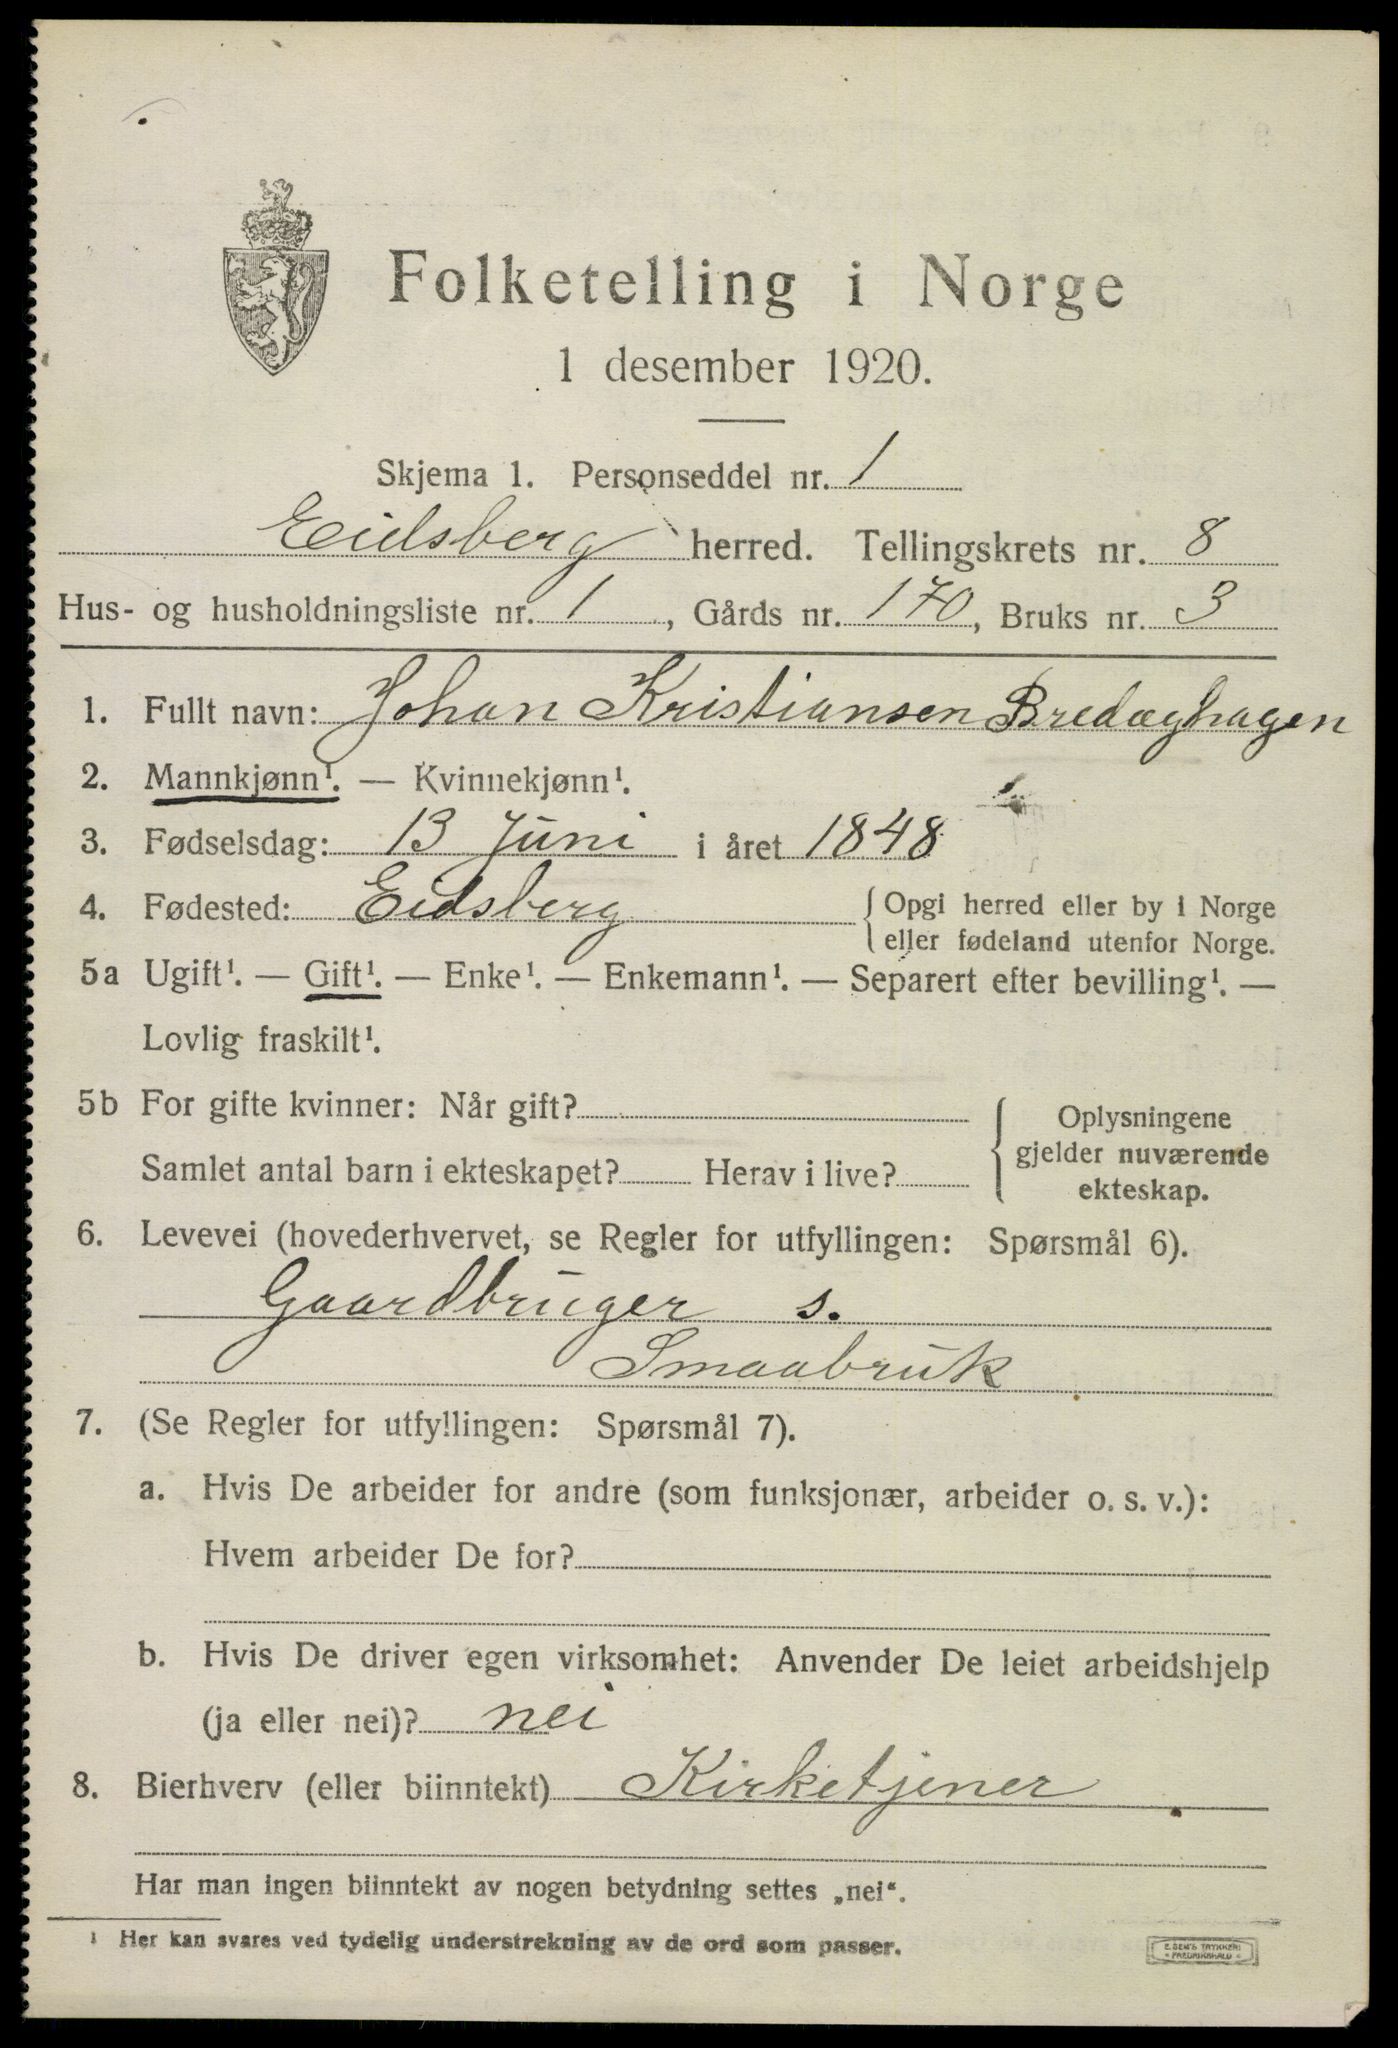 Folketelling i Norge
1 desember 1920.
Skjema 1. Personseddel nr. 1
Eidsberg herred. Tellingskrets nr. 8
Hus- og husholdningsliste nr. 1, Gårds nr. 170, Bruks nr. 3
1. Fullt navn: Johan Kristiansen Bredæghagen
2. Mannkjønn¹. — Kvinnekjønn¹.
3. Fødselsdag: 13 Juni i året 1848
4. Fødested: Eidsberg { Opgi herred eller by i Norge
eller fødeland utenfor Norge.
5a Ugift¹. — Gift¹. — Enke¹. — Enkemann¹. — Separert efter bevilling¹. —
Lovlig fraskilt¹.
5b For gifte kvinner: Når gift?
Samlet antal barn i ekteskapet? Herav i live?
Oplysningene
gjelder nuværende
ekteskap.
6. Levevei (hovederhvervet, se Regler for utfyllingen: Spørsmål 6).
Gaardbruger s.
Smaabruk
7. (Se Regler for utfyllingen: Spørsmål 7).
a. Hvis De arbeider for andre (som funksjonær, arbeider o. s. v.):
Hvem arbeider De for?
b. Hvis De driver egen virksomhet: Anvender De leiet arbeidshjelp
(ja eller nei)? nei
8. Bierhverv (eller biinntekt) Kirketjener
Har man ingen biinntekt av nogen betydning settes „nei“.
¹ Her kan svares ved tydelig understrekning av de ord som passer.
E. SEM'S TRYKKERI
FREDRIKSHALD